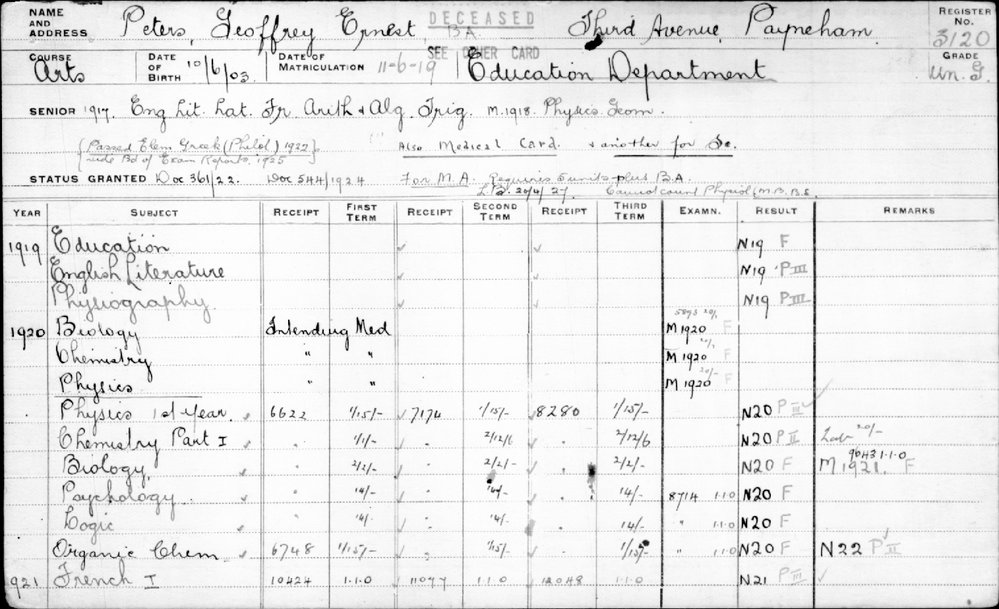 NAME AND ADDRESS Peters, Geoffrey Ernest, BA. DECEASED Third Avenue, Payneham. REGISTER No. 3120
SEE OTHER CARD
COURSE Arts DATE OF BIRTH 10/6/03 DATE OF MATRICULATION 11-6-19 Education Department GRADE Un. G.
SENIOR 1917. Eng Lit. Lat. Fr. Arith & Alg. Trig. M.1918. Physics. Geom.
{Passed Elem Greek (Philol) 1922} Also Medical Card. & another for Sc.
{vide Bd of Exam Reports, 1925}
STATUS GRANTED Doc 361/22. Doc 544/1924 For M.A. Requires 5 units plus B.A.
20/4/27. Cannot count Physiol, M.B.B.S.
YEAR SUBJECT RECEIPT FIRST TERM RECEIPT SECOND TERM RECEIPT THIRD TERM EXAMN. RESULT REMARKS
1919 Education ✓ ✓ N19 F
English Literature ✓ ✓ N19 P III
Physiography ✓ ✓ N19 P III
1920 Biology Intending Med 5893 20/- M 1920 F
Chemistry " " M 1920 F
Physics " " 20/- M 1920 F
Physics 1st Year ✓ 6622 1/15/- ✓ 7174 1/15/- ✓ 8280 1/15/- N20 P III ✓
Chemistry Part I ✓ " 1/1/- ✓ " 2/12/6 " 2/12/6 N20 P II Lab 20/-
Biology ✓ " 2/2/- ✓ " 2/2/- " 2/2/- N20 F 9643 1.1.0 M 1921. F
Psychology ✓ " 14/- ✓ " 14/- " 14/- 8714 1.1.0 N20 F
Logic ✓ " 14/- ✓ " 14/- 14/- " 1.1.0 N20 F
Organic Chem ✓ 6748 1/15/- ✓ " 1/15/- 1/15/- " 1.1.0 N20 F N22 P II ✓
921 French I 10424 1.1.0 11077 1.1.0 12048 1.1.0 N21 P III ✓